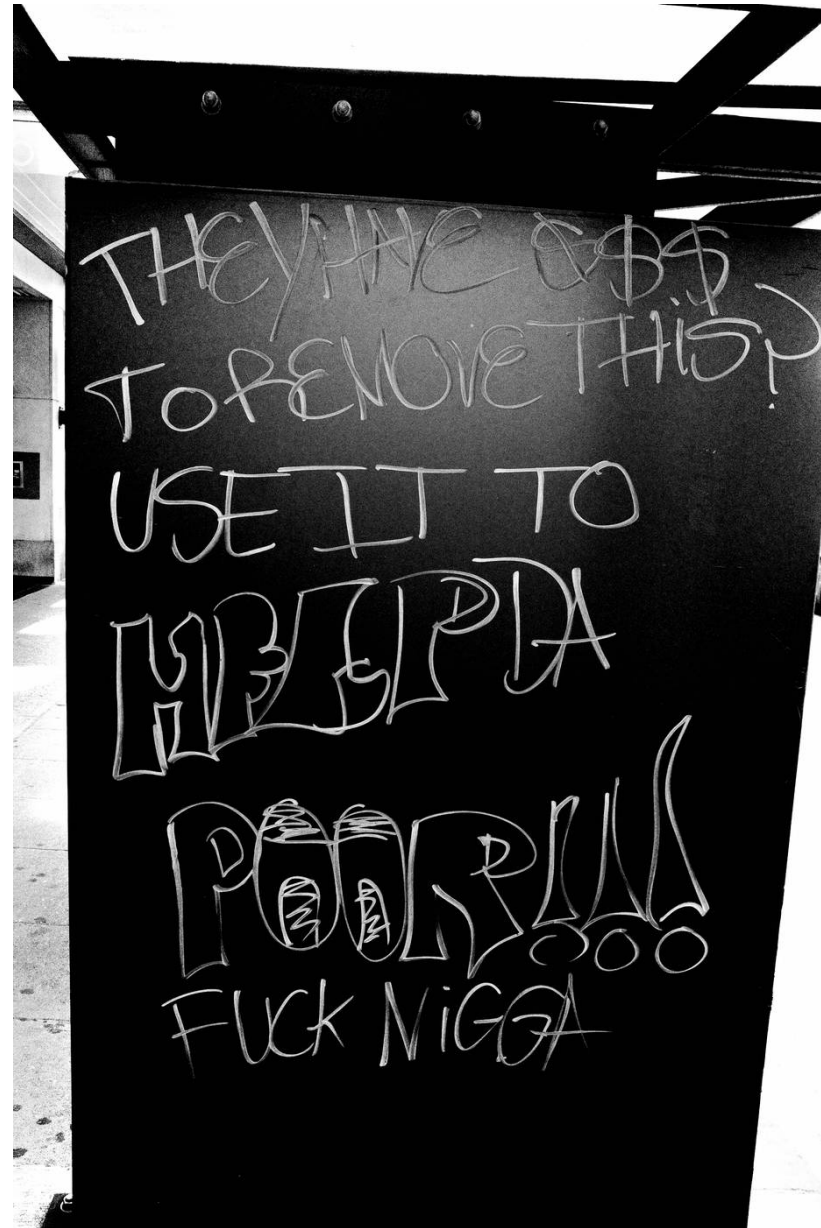 THEY HAVE $$$
TO REMOVE THIS?
USE IT TO
HELP DA
POOR!!!
FUCK NiGGA